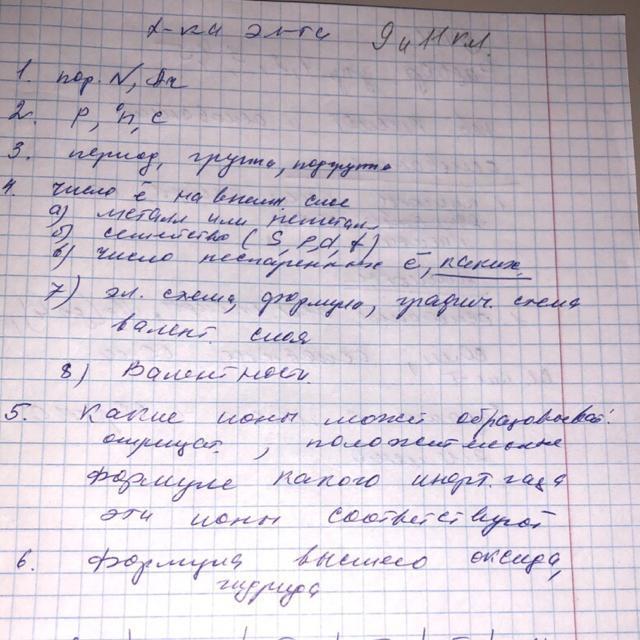 х-ка эл-та 9 и 11 кл.
1. пор. N, Ar
2. p, n, e
3. период, группа, подгруппа
4. число ē на внешн слое
а) металл или неметал.
б) семейство (s, p, d, f)
в) число неспаренных ē, каких
7) эл. схема, формула, графич. схема
валент. слоя
8) Валентности.
5. Какие ионы может образовывать:
отрицат, положительные
формуле какого инерт. газа
эти ионы соответствуют
6. Формула высшего оксида,
гидрида